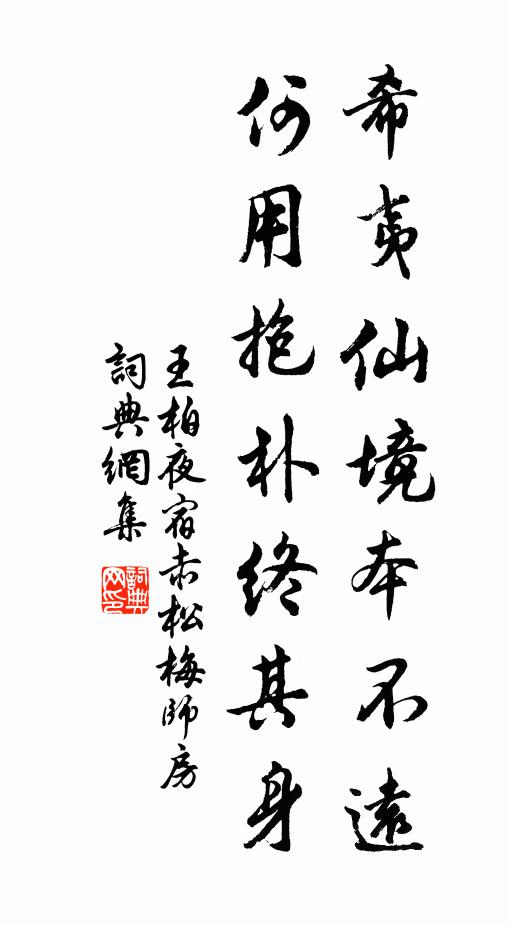 希夷仙境本不遠
何用抱朴終其身
王柏夜宿赤松梅師房
詞典網集
詞典網印